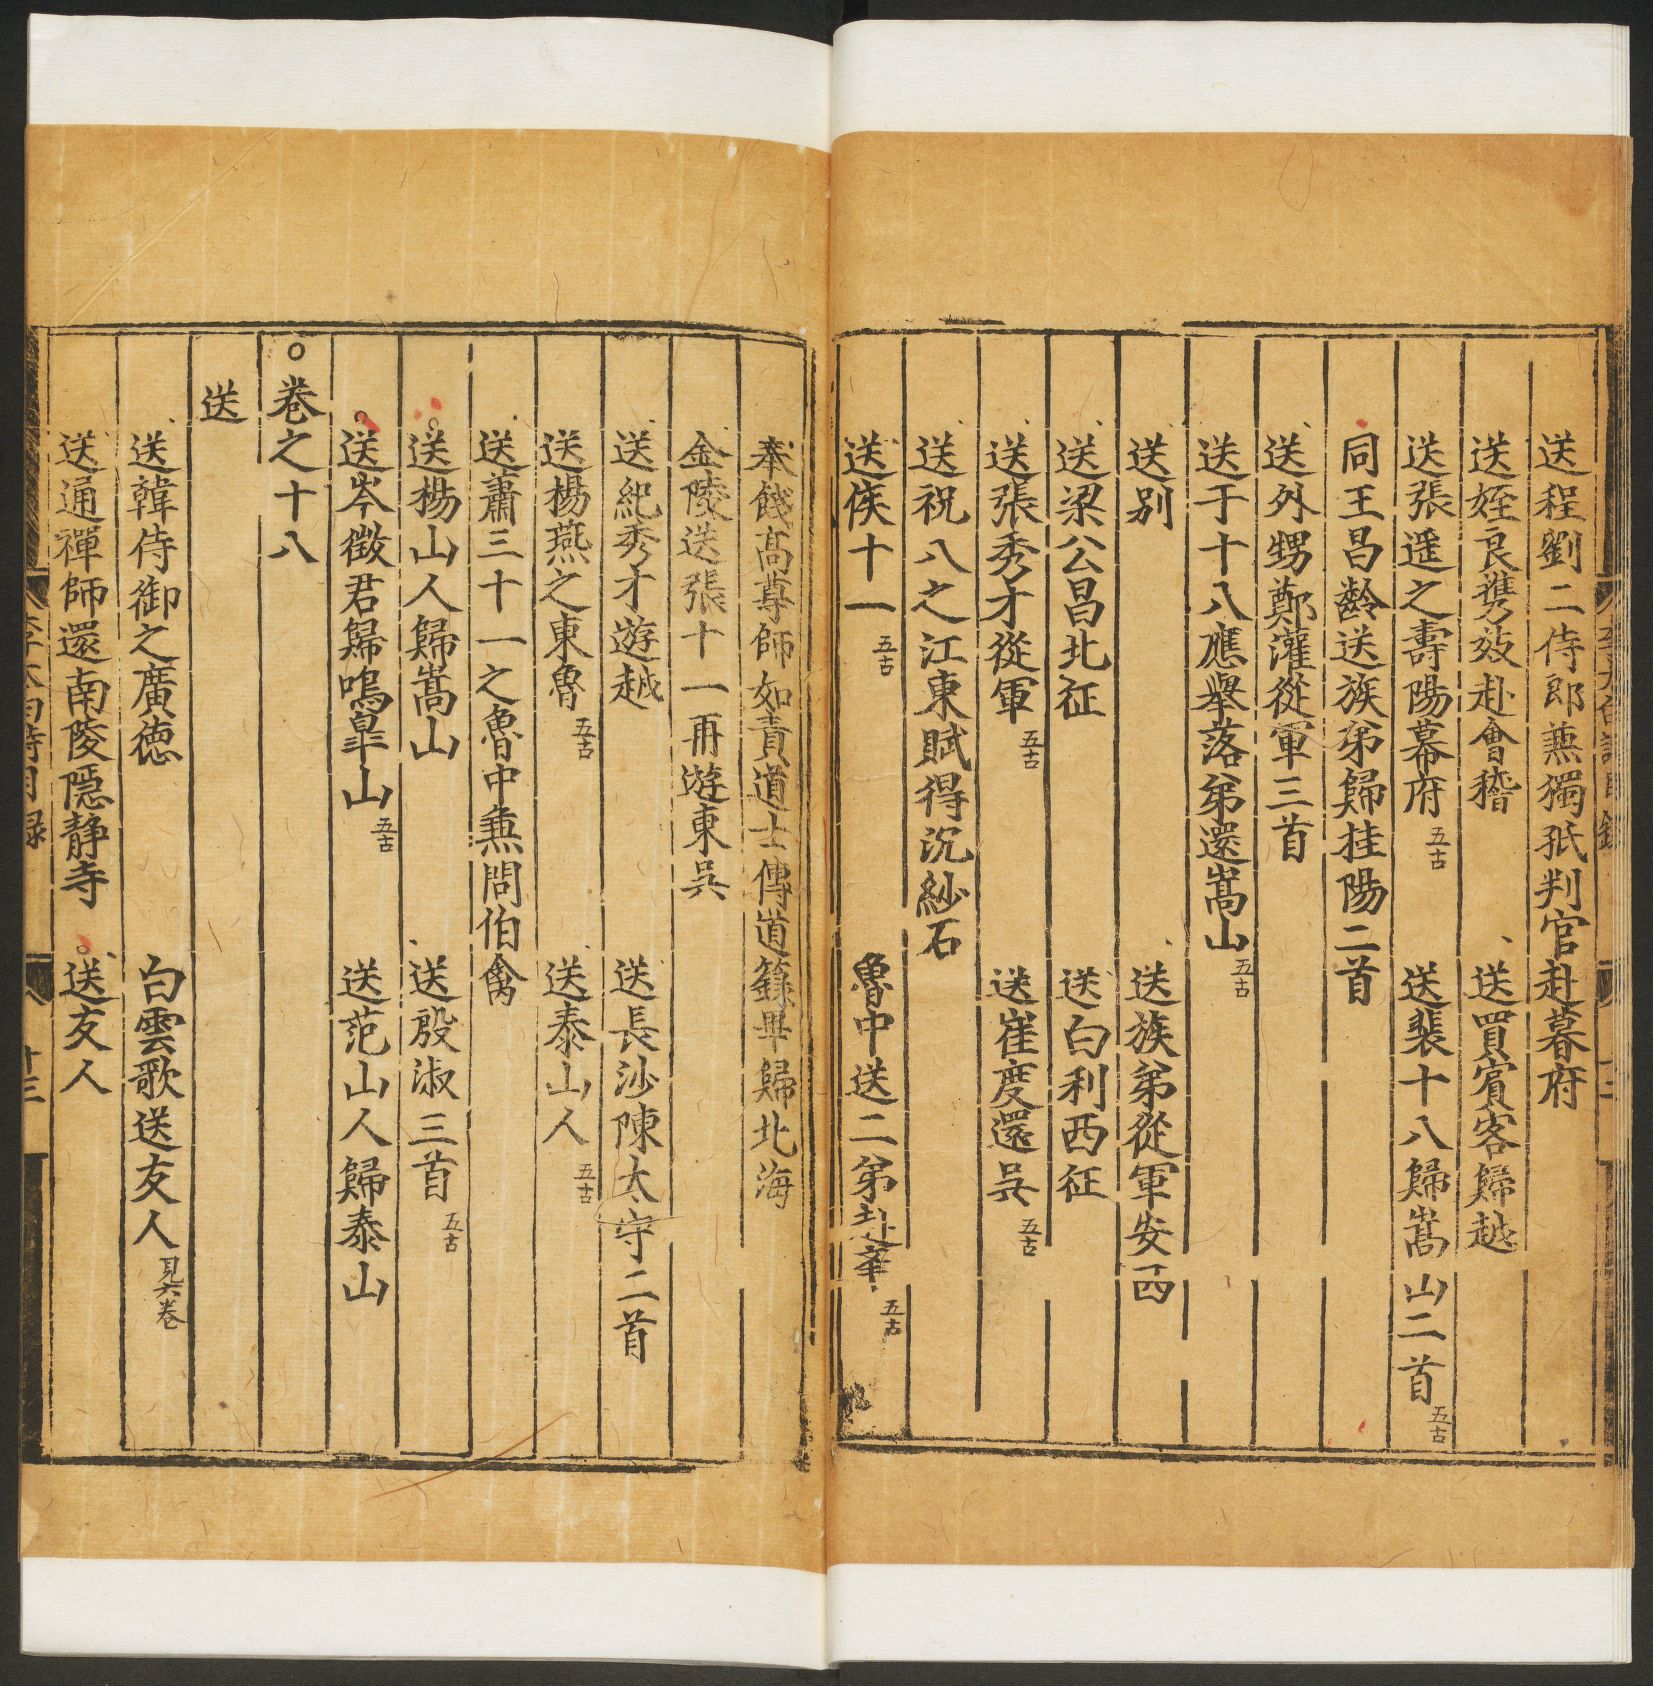 送程劉二侍郎蕪獨孤判官赴暮府
送姪良携效赴會稽 送賀賓客歸越
送張遥之壽陽幕府 五古 送裴十八歸嵩山二首 五古
同王昌齡送族弟歸桂陽二首
送外甥鄭灌從軍三首
送于十八應舉落第還嵩山 五古
送別 送族弟從軍安西
送梁公昌北征 送白利西征
送張秀才從軍 五古 送崔度還吳 五古
送祝八之江東賦得浣紗石
送侯十一 五古 魯中送二弟赴舉 五古
奉餞高尊師如貴道士傳道籙畢歸北海
金陵送張十一再遊東吳
送紀秀才遊越 送長沙陳太守二首
送楊燕之東魯 五古 送泰山人 五古
送蕭三十一之魯中蕪問伯禽
送楊山人歸嵩山 送殷淑三首 五古
送岑徵君歸鳴皋山 五古 送范山人歸泰山
卷之十八
送
送韓侍御之廣德 白雲歌送友人 見六卷
送通禪師還南陵隱静寺 送友人
李太白詩目録 十三